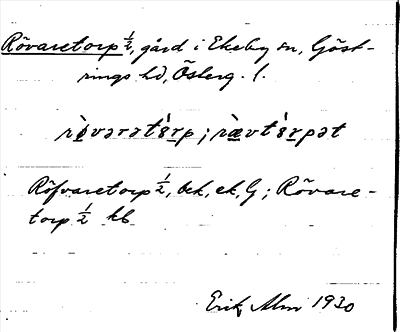 Rövaretorp ½, gård i Ekeby sn, Göst-
rings hd, Österg. l.
Röfvaretorp ½, bek, ek, G; Rövare-
torp ½ kb
Erik Alm 1930